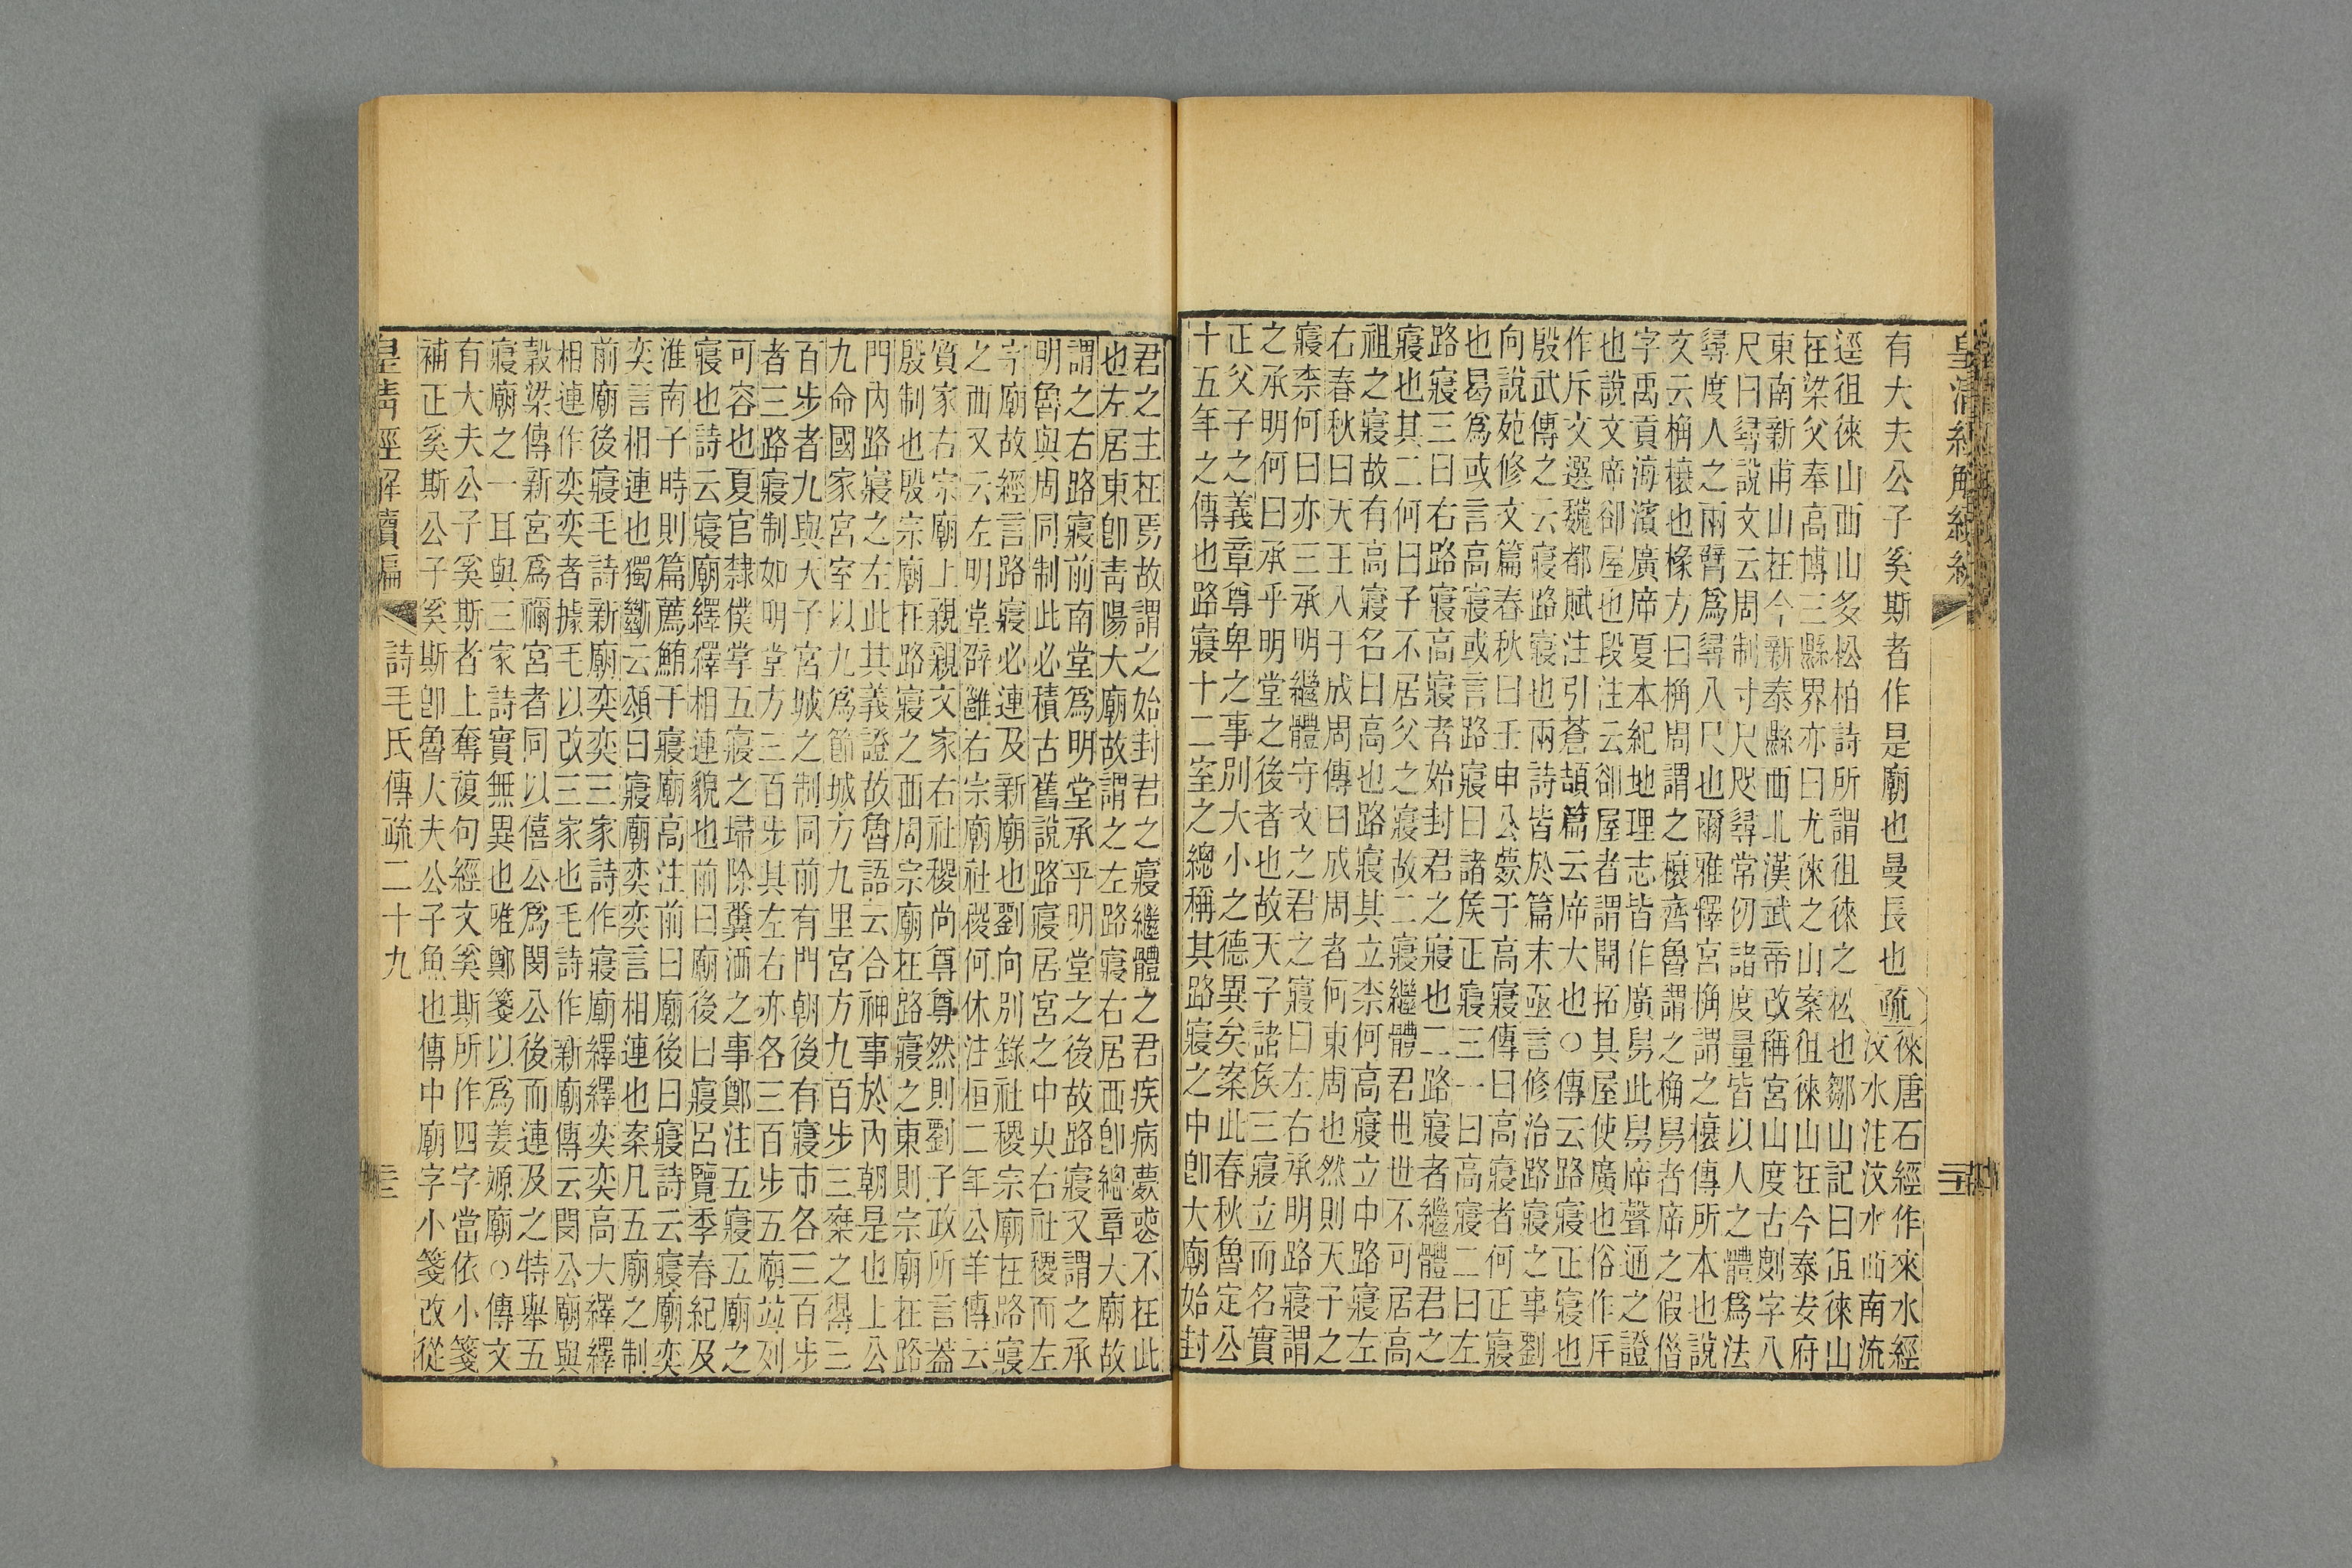 皇清經解續編
有大夫公子奚斯者作是廟也曼長也疏
徠唐石經作來水經
汶水注汶水西南流
逕徂徠山西山多松柏詩所謂徂徠之松也鄒山記曰徂徠山
在梁父奉高博三縣界亦曰尤徠之山案徂徠山在今泰安府
東南新甫山在今新泰縣西北漢武帝改稱宮山度古劇字八
尺曰尋說文云周制寸尺咫尋常仞諸度量皆以人之體爲法
尋度人之兩臂爲尋八尺也爾雅釋宮桷謂之榱傳所本也說
文云桷榱也椽方曰桷周謂之榱齊魯謂之桷舄者㡿之假偕
字禹貢海濱廣㡿夏本紀地理志皆作廣舄此舄㡿聲通之證
也說文㡿卻屋也段注云卻屋者謂開拓其屋使廣也俗作斥
作斥文選魏都賦注引蒼頡篇云㡿大也○傳云路寢正寢也
殷武傳之云寢路寢也兩詩皆於篇末亟言修治路寢之事劉
向說苑修文篇春秋曰壬申公薨于高寢傳曰高寢者何正寢
也曷爲或言高寢或言路寢曰諸矦正寢三一曰高寢二曰左
路寢三曰右路寢高寢者始封君之寢也二路寢者繼體君之
寢也其二何曰子不居父之寢故二寢繼體君世世不可居高
祖之寢故有高寢名曰高也路寢其立柰何高寢立中路寢左
右春秋曰天王入于成周傳曰成周者何東周也然則天子之
寢柰何曰亦三承明繼體守文之君之寢曰左右承明路寢謂
之承明何曰承乎明堂之後者也故天子諸矦三寢立而名實
正父子之義章尊卑之事別大小之德異矣案此春秋魯定公
十五年之傳也路寢十二室之總稱其路寢之中卽大廟始封
君之主在焉故謂之始封君之寢繼體之君疾病薨愆不在此
也左居東卽青陽大廟故謂之左路寢右居西卽總章大廟故
謂之右路寢前南堂爲明堂承乎明堂之後故路寢又謂之承
明魯與周同制此必積古舊說路寢居宮之中央右社稷而左
宗廟故經言路寢必連及新廟也劉向別錄社稷宗廟在路寢
之西又云左明堂辟雝右宗廟社稷何休注桓二年公羊傳云
質家右宗廟上親親文家右社稷尚尊尊然則劉子政所言葢
殷制也殷宗廟在路寢之西周宗廟在路寢之東則宗廟在路
門內路寢之左此其義證故魯語云合神事於內朝是也上公
九命國家宮室以九爲節城方九里宮方九百步三桀之得三
百步者九與天子宮城之制同前有門朝後有寢市各三百步
者三路寢制如明堂方三百步其左右亦各三百步五廟竝列
可容也夏官隸僕掌五寢之埽除糞洒之事鄭注五寢五廟之
寢也詩云寢廟繹繹相連貌也前曰廟後曰寢呂覽季春紀及
淮南子時則篇薦鮪于寢廟高注前曰廟後曰寢詩云寢廟奕
奕言相連也獨斷云頌曰寢廟奕奕言相連也案凡五廟之制
前廟後寢毛詩新廟奕奕三家詩作寢廟繹繹奕奕高大繹繹
相連作奕奕者據毛以改三家也毛詩作新廟傳云閔公廟與
穀梁傳新宮爲禰宮者同以僖公爲閔公後而連及之特舉五
寢廟之一耳與三家詩實無異也唯鄭箋以爲姜嫄廟○傳文
有大夫公子奚斯者上奪複句經文奚斯所作四字當依小箋
補正奚斯公子奚斯卽魯大夫公子魚也傳中廟字小箋改從
皇清經解續編 詩毛氏傳疏二十九